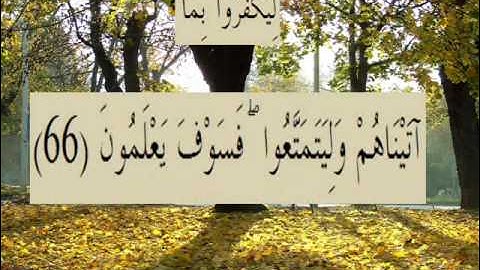 لِيَكْفُرُوا بِمَا
آتَيْنَاهُمْ وَلِيَتَمَتَّعُوا ۖ فَسَوْفَ يَعْلَمُونَ (66)